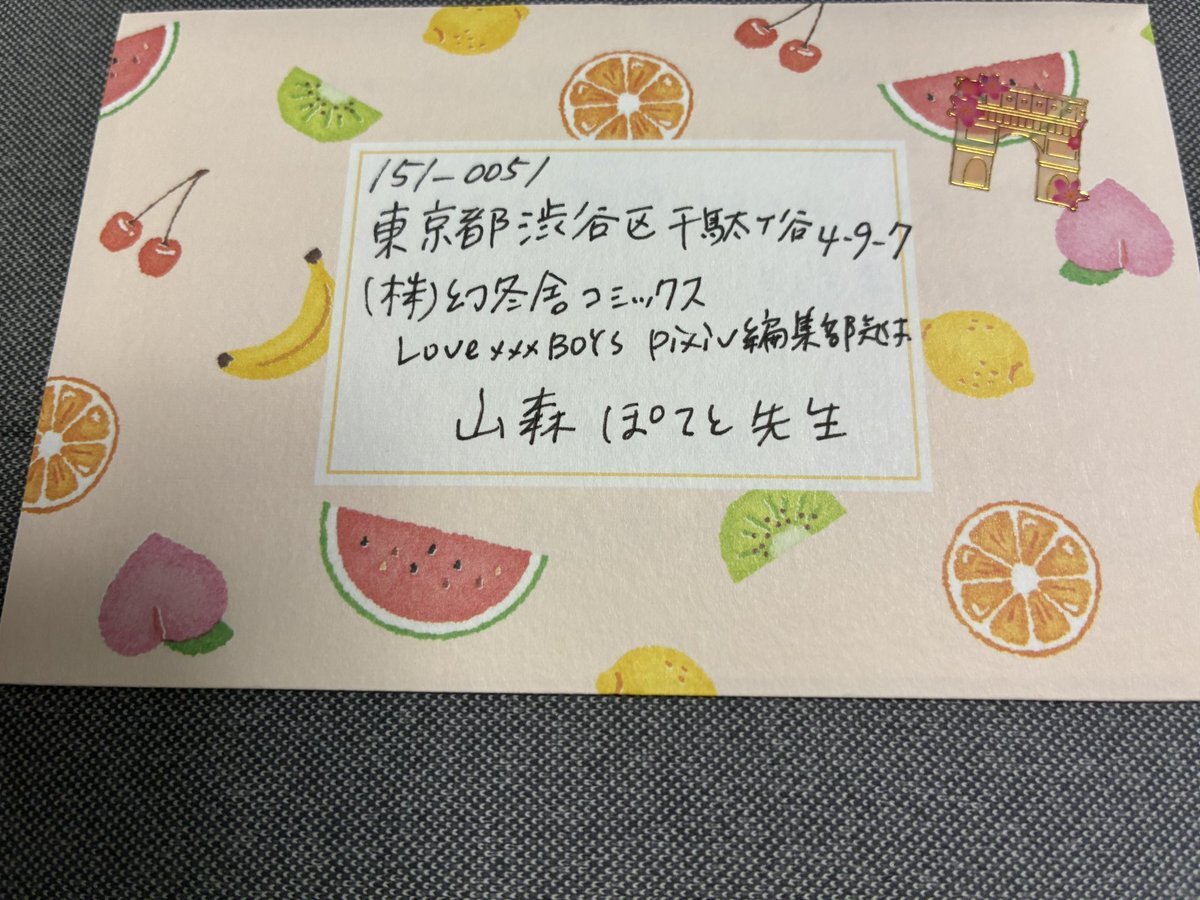 151-0051
東京都渋谷区千駄ヶ谷4-9-7
(株)幻冬舎コミックス
Love xxx BOYS pixiv編集部気付
山森 ぽてと 先生